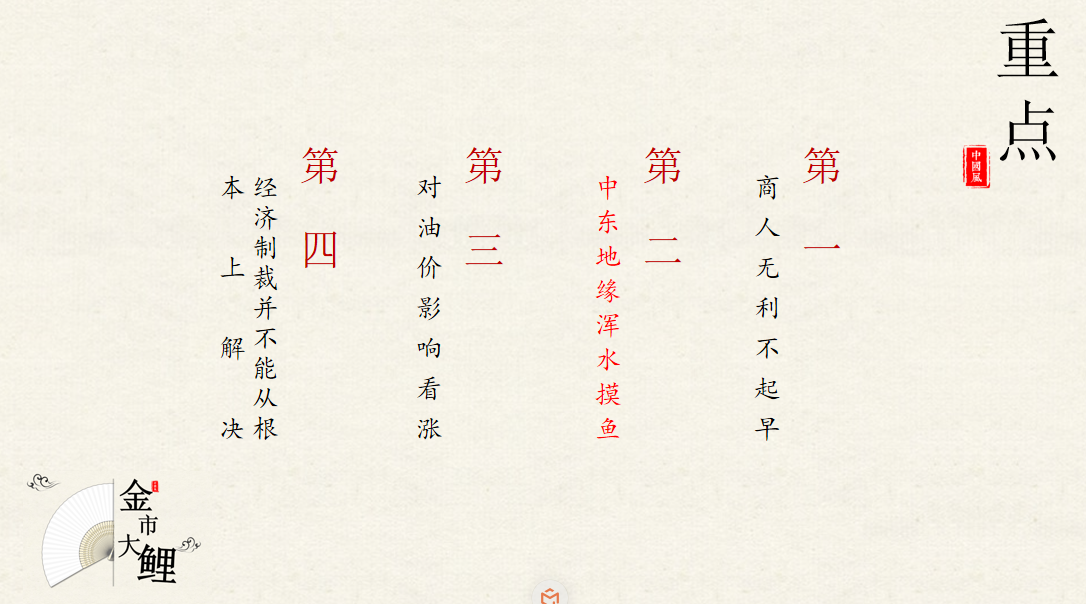 重点
中國風
第一
商人无利不起早
第二
中东地缘浑水摸鱼
第三
对油价影响看涨
第四
经济制裁并不能从根
本上解决
金市大鲤